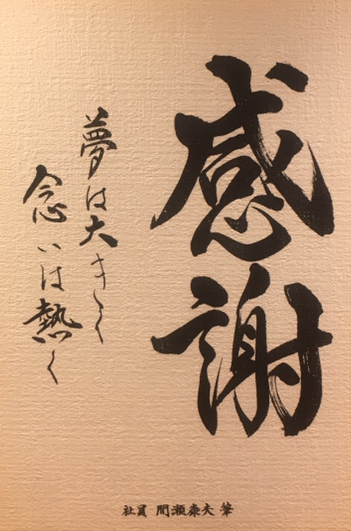 感謝
夢は大きく
念いは熱く
社員 間瀬泰夫 筆